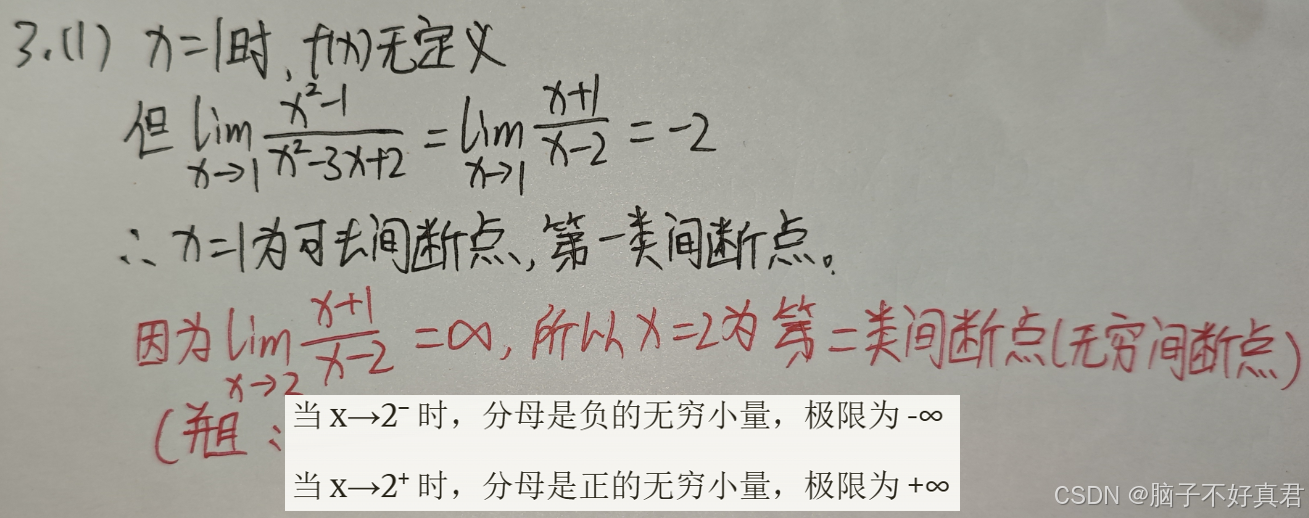 3.(1) x=1时,f(x)无定义
但 lim x→1 (x²-1)/(x²-3x+2) = lim x→1 (x+1)/(x-2) = -2
∴ x=1为可去间断点,第一类间断点。
因为 lim x→2 (x+1)/(x-2) = ∞,所以 x=2为第二类间断点(无穷间断点)
(并且:
当 x→2⁻ 时,分母是负的无穷小量,极限为 -∞
当 x→2⁺ 时,分母是正的无穷小量,极限为 +∞
CSDN @脑子不好真君